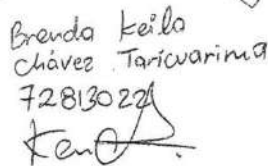 Brenda Keila
Chávez Taricuarima
72813022